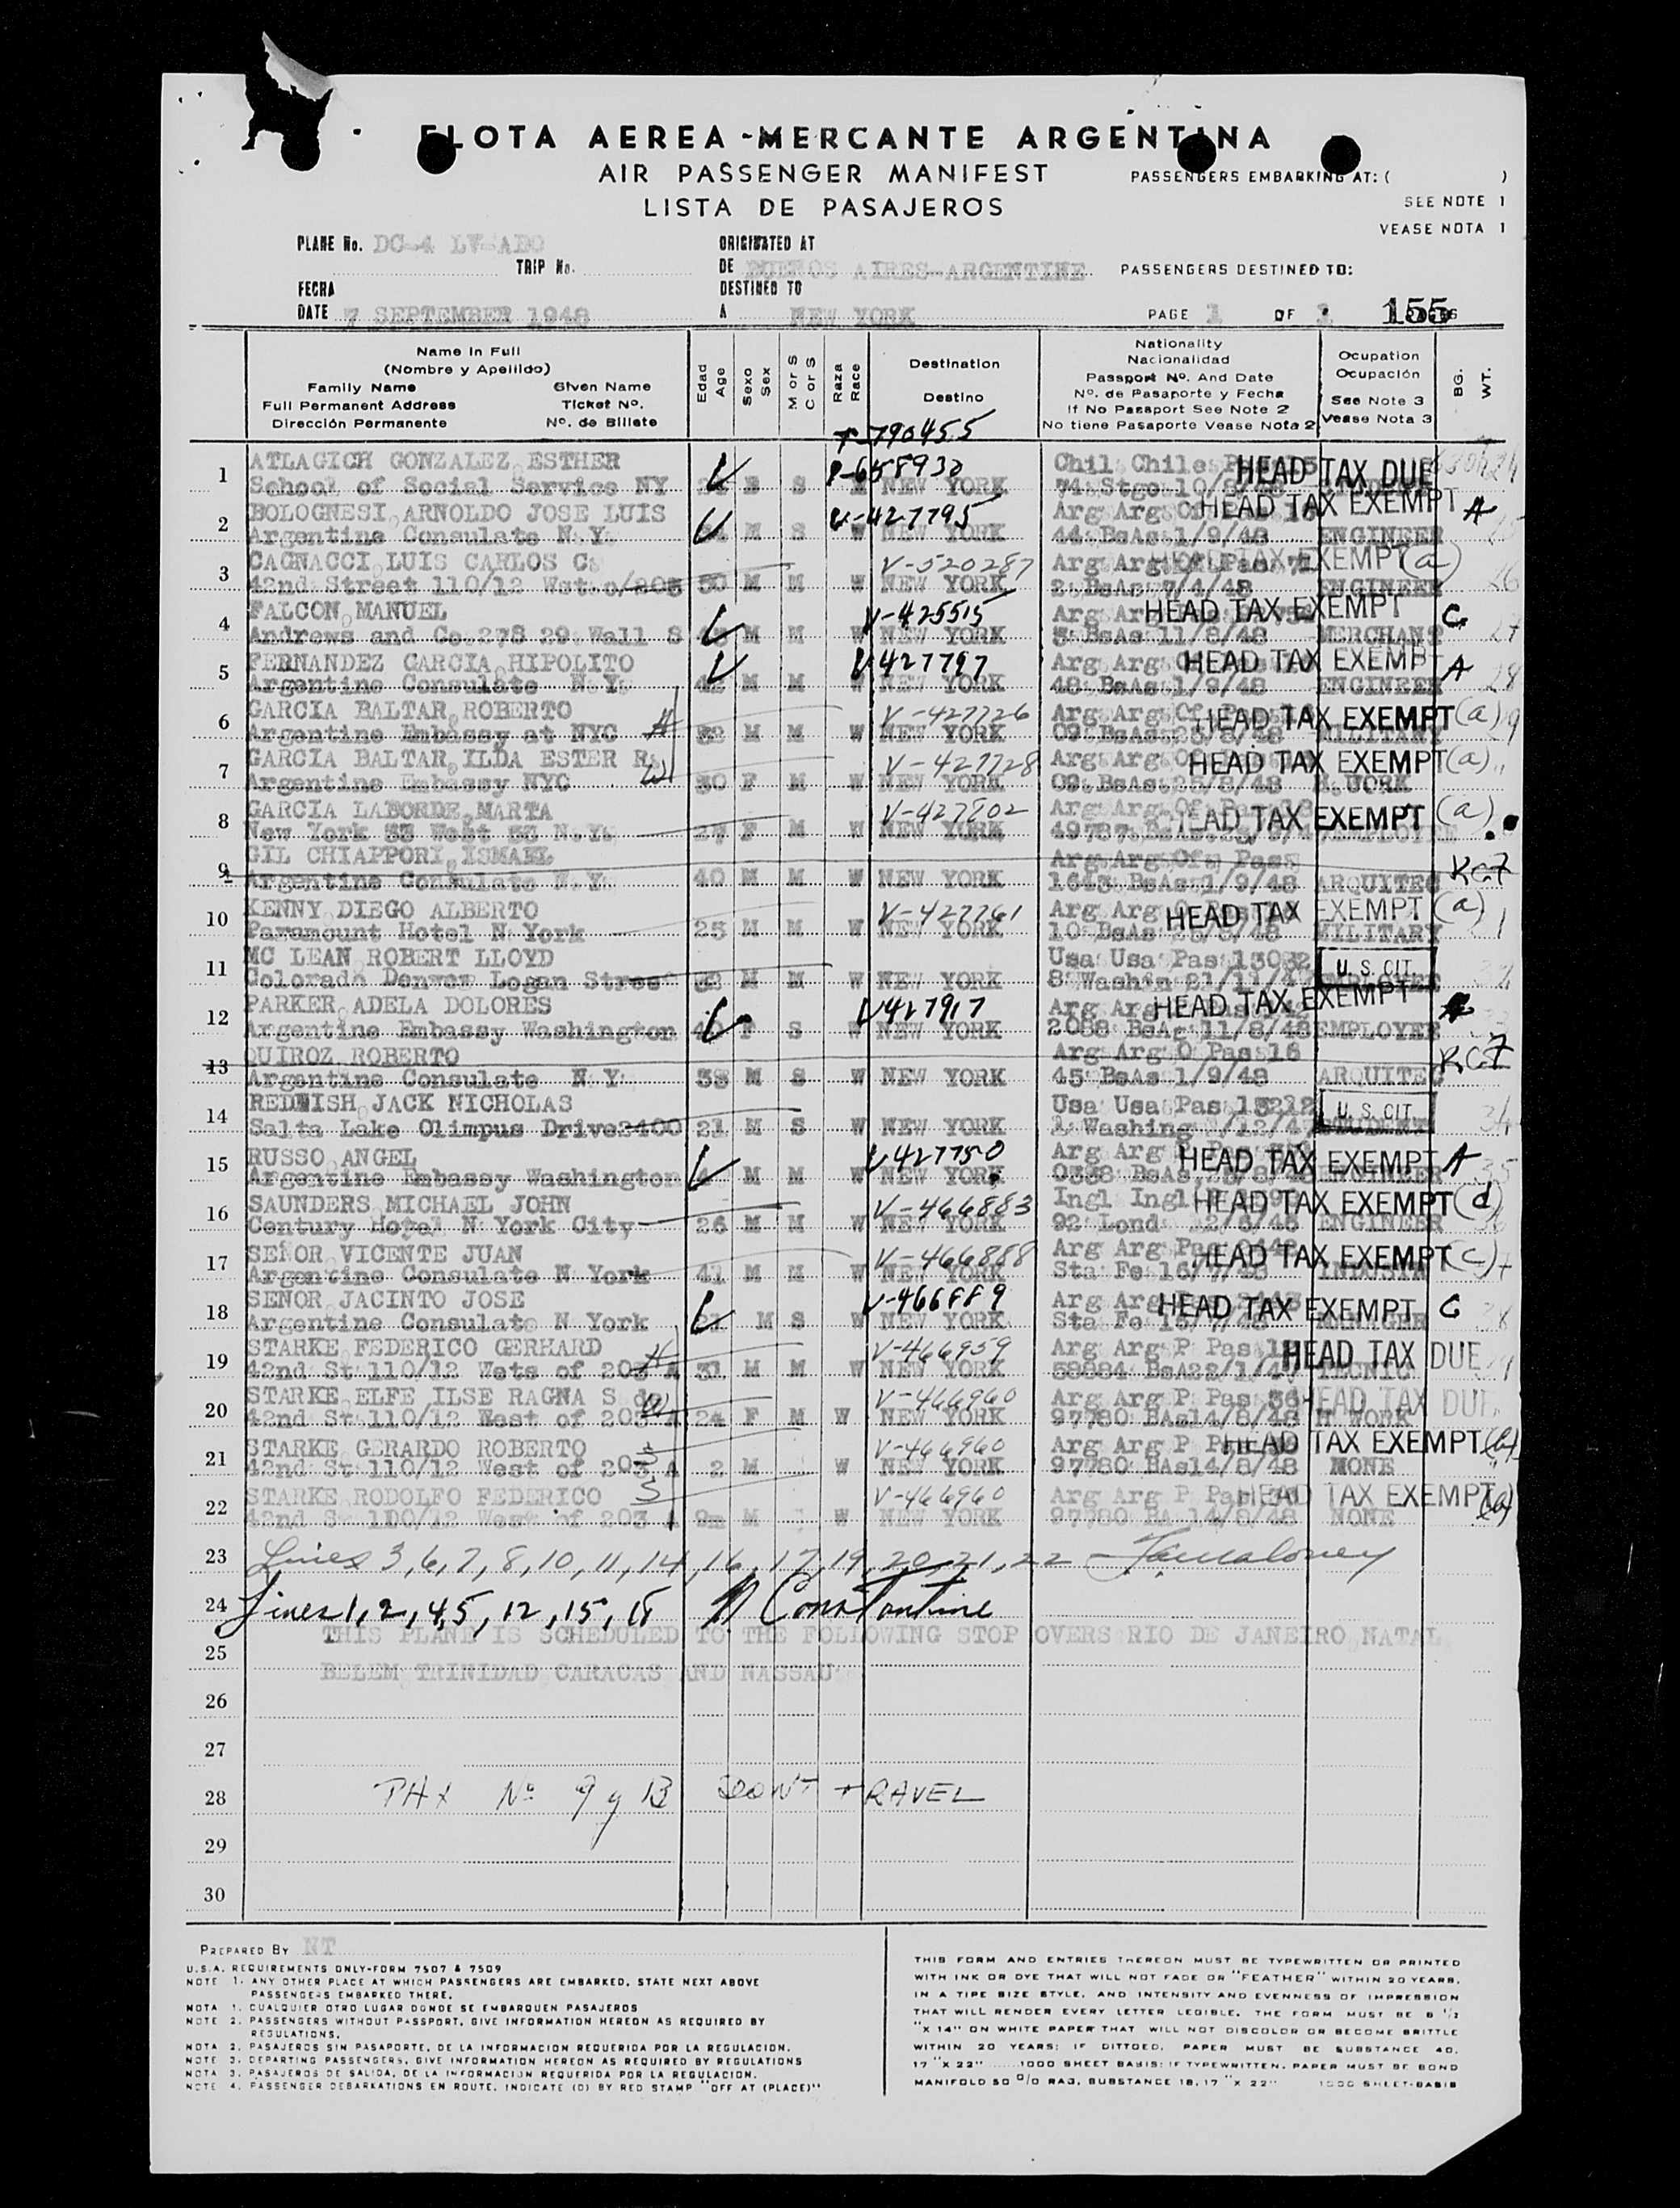 FLOTA AEREA-MERCANTE ARGENTINA
AIR PASSENGER MANIFEST
PASSENGERS EMBARKING AT: ( )
LISTA DE PASAJEROS
SEE NOTE 1
VEASE NOTA 1
PLANE No. DC-4 LV-ADO
TRIP No.
ORIGINATED AT
DE BUENOS AIRES-ARGENTINE
PASSENGERS DESTINED TO:
FECHA
DATE 7 SEPTEMBER 1948
DESTINED TO
A NEW YORK
PAGE 1 OF 155
Name in Full
(Nombre y Apellido)
Family Name Given Name
Full Permanent Address Ticket Nº.
Dirección Permanente Nº. de Billete
Edad Age
Sexo Sex
M or S
C or S
Raza Race
Destination
Destino
Nationality
Nacionalidad
Passport Nº. And Date
Nº. de Pasaporte y Fecha
If No Passport See Note 2
No tiene Pasaporte Vease Nota 2
Ocupation
Ocupación
See Note 3
Vease Nota 3
BG. WT.
T-790455
1 ATLAGICH GONZALEZ, ESTHER P-658932 Chil Chile HEAD TAX DUE
School of Social Service NY S NEW YORK 74 Stgo 10/8/48
2 BOLOGNESI, ARNOLDO JOSE LUIS V-427795 Arg Arg HEAD TAX EXEMPT A
Argentine Consulate N Y M S W NEW YORK 44 BsAs 1/9/48 ENGINEER
3 CAGNACCI, LUIS CARLOS C V-520287 Arg Arg HEAD TAX EXEMPT (a)
42nd Street 110/12 Wst o/205 50 M M W NEW YORK 2 BsAs 7/4/48 ENGINEER 26
4 FALCON, MANUEL V-425515 Arg Arg HEAD TAX EXEMPT C
Andrews and Co 278 29 Wall S M M W NEW YORK 5 BsAs 11/8/48 MERCHANT 27
5 FERNANDEZ GARCIA, HIPOLITO V427797 Arg Arg HEAD TAX EXEMPT A
Argentine Consulate N Y 42 M M W NEW YORK 48 BsAs 1/9/48 ENGINEER 28
6 GARCIA BALTAR, ROBERTO H V-427726 Arg Arg Of HEAD TAX EXEMPT (a)
Argentine Embassy at NYC 32 M M W NEW YORK 09 BsAs 25/8/48 MILITARY
7 GARCIA BALTAR, ILDA ESTER R W V-427728 Arg Arg HEAD TAX EXEMPT (a)
Argentine Embassy NYC 30 F M W NEW YORK 09 BsAs 25/8/48 H. WORK
8 GARCIA LABORDE, MARTA V-427802 Arg Arg Of Pas HEAD TAX EXEMPT (a)
New York 33 West 53 N Y 27 F M W NEW YORK 49787
9 GIL CHIAPPORI, ISMAEL Arg Arg Of Pass RCF
Argentine Consulate N Y 40 M M W NEW YORK 1643 BsAs 1/9/48 ARQUITEC
10 KENNY, DIEGO ALBERTO V-427761 Arg Arg HEAD TAX EXEMPT (a)
Paramount Hotel N York 25 M M W NEW YORK 10 BsAs 25/8/48 MILITARY
11 MC LEAN, ROBERT LLOYD Usa Usa Pas 13032 U. S. CIT
Colorado Denver Logan Street M M W NEW YORK 8 Washin 21/11/47
12 PARKER, ADELA DOLORES V427917 Arg Arg HEAD TAX EXEMPT A
Argentine Embassy Washington F S W NEW YORK 2088 BsAs 11/8/48 EMPLOYEE
13 QUIROZ, ROBERTO Arg Arg O Pas 16 RCF
Argentine Consulate N Y 38 M S W NEW YORK 45 BsAs 1/9/48 ARQUITEC
14 REDWISH, JACK NICHOLAS Usa Usa Pas 13212 U. S. CIT
Salta Lake Olimpus Drive 2400 21 M S W NEW YORK 1 Washing /12/47 STUDENT 34
15 RUSSO, ANGEL V427750 Arg Arg HEAD TAX EXEMPT A
Argentine Embassy Washington M M W NEW YORK 0338 BsAs 25/8/48 ENGINEER 35
16 SAUNDERS, MICHAEL JOHN V-466883 Ingl Ingl HEAD TAX EXEMPT (d)
Century Hotel N York City 26 M M W NEW YORK 92 Lond ENGINEER
17 SEÑOR, VICENTE JUAN V-466888 Arg Arg Pas HEAD TAX EXEMPT (c)
Argentine Consulate N York 41 M M W NEW YORK Sta Fe 16/7/48
18 SEÑOR, JACINTO JOSE V-466889 Arg Arg HEAD TAX EXEMPT C
Argentine Consulate N York M S W NEW YORK Sta Fe
19 STARKE, FEDERICO GERHARD H V-466959 Arg Arg P Pas HEAD TAX DUE
42nd St 110/12 Wets of 203 A 31 M M W NEW YORK 58884 BsA22/1/47 TECNIC
20 STARKE, ELFE ILSE RAGNA S de W V-466960 Arg Arg P Pas 36 HEAD TAX DUE
42nd St 110/12 West of 203 A 24 F M W NEW YORK 97780 BAs14/8/48 H WORK
21 STARKE, GERARDO ROBERTO V-466960 Arg Arg P HEAD TAX EXEMPT (b)
42nd St 110/12 West of 203 A 2 M W NEW YORK 97780 BAs14/8/48 NONE
22 STARKE, RODOLFO FEDERICO V-466960 Arg Arg P HEAD TAX EXEMPT (a)
42nd S 110/12 West of 203 A 9m M W NEW YORK 97780 BA 14/8/48 NONE
23 Lines 3, 6, 7, 8, 10, 11, 14, 16, 17, 19, 20, 21, 22 - Maloney
24 Lines 1, 2, 4, 5, 12, 15, 18 Constantine
THIS PLANE IS SCHEDULED TO THE FOLLOWING STOP OVERS RIO DE JANEIRO, NATAL
25 BELEM TRINIDAD CARACAS AND NASSAU
26
27
28 PAX Nº 9 y 13 DONT TRAVEL
29
30
PREPARED BY NT
U.S.A. REQUIREMENTS ONLY-FORM 7507 & 7509
NOTE 1. ANY OTHER PLACE AT WHICH PASSENGERS ARE EMBARKED, STATE NEXT ABOVE
PASSENGERS EMBARKED THERE.
NOTA 1. CUALQUIER OTRO LUGAR DONDE SE EMBARQUEN PASAJEROS
NOTE 2. PASSENGERS WITHOUT PASSPORT, GIVE INFORMATION HEREON AS REQUIRED BY
REGULATIONS.
NOTA 2. PASAJEROS SIN PASAPORTE, DE LA INFORMACION REQUERIDA POR LA REGULACION.
NOTE 3. DEPARTING PASSENGERS, GIVE INFORMATION HEREON AS REQUIRED BY REGULATIONS
NOTA 3. PASAJEROS DE SALIDA, DE LA INFORMACION REQUERIDA POR LA REGULACION.
NOTE 4. PASSENGER DEBARKATIONS EN ROUTE, INDICATE (D) BY RED STAMP "OFF AT (PLACE)"
THIS FORM AND ENTRIES THEREON MUST BE TYPEWRITTEN OR PRINTED
WITH INK OR DYE THAT WILL NOT FADE OR "FEATHER" WITHIN 20 YEARS,
IN A TIPE SIZE STYLE, AND INTENSITY AND EVENNESS OF IMPRESSION
THAT WILL RENDER EVERY LETTER LEGIBLE. THE FORM MUST BE 8 1/2
"X 14" ON WHITE PAPER THAT WILL NOT DISCOLOR OR BECOME BRITTLE
WITHIN 20 YEARS; IF DITTOED, PAPER MUST BE SUBSTANCE 40,
17 "X 22" ......1000 SHEET BASIS; IF TYPEWRITTEN, PAPER MUST BE BOND
MANIFOLD 50 0/0 RAG, SUBSTANCE 18, 17 "X 22" 1000 SHEET-BASIS